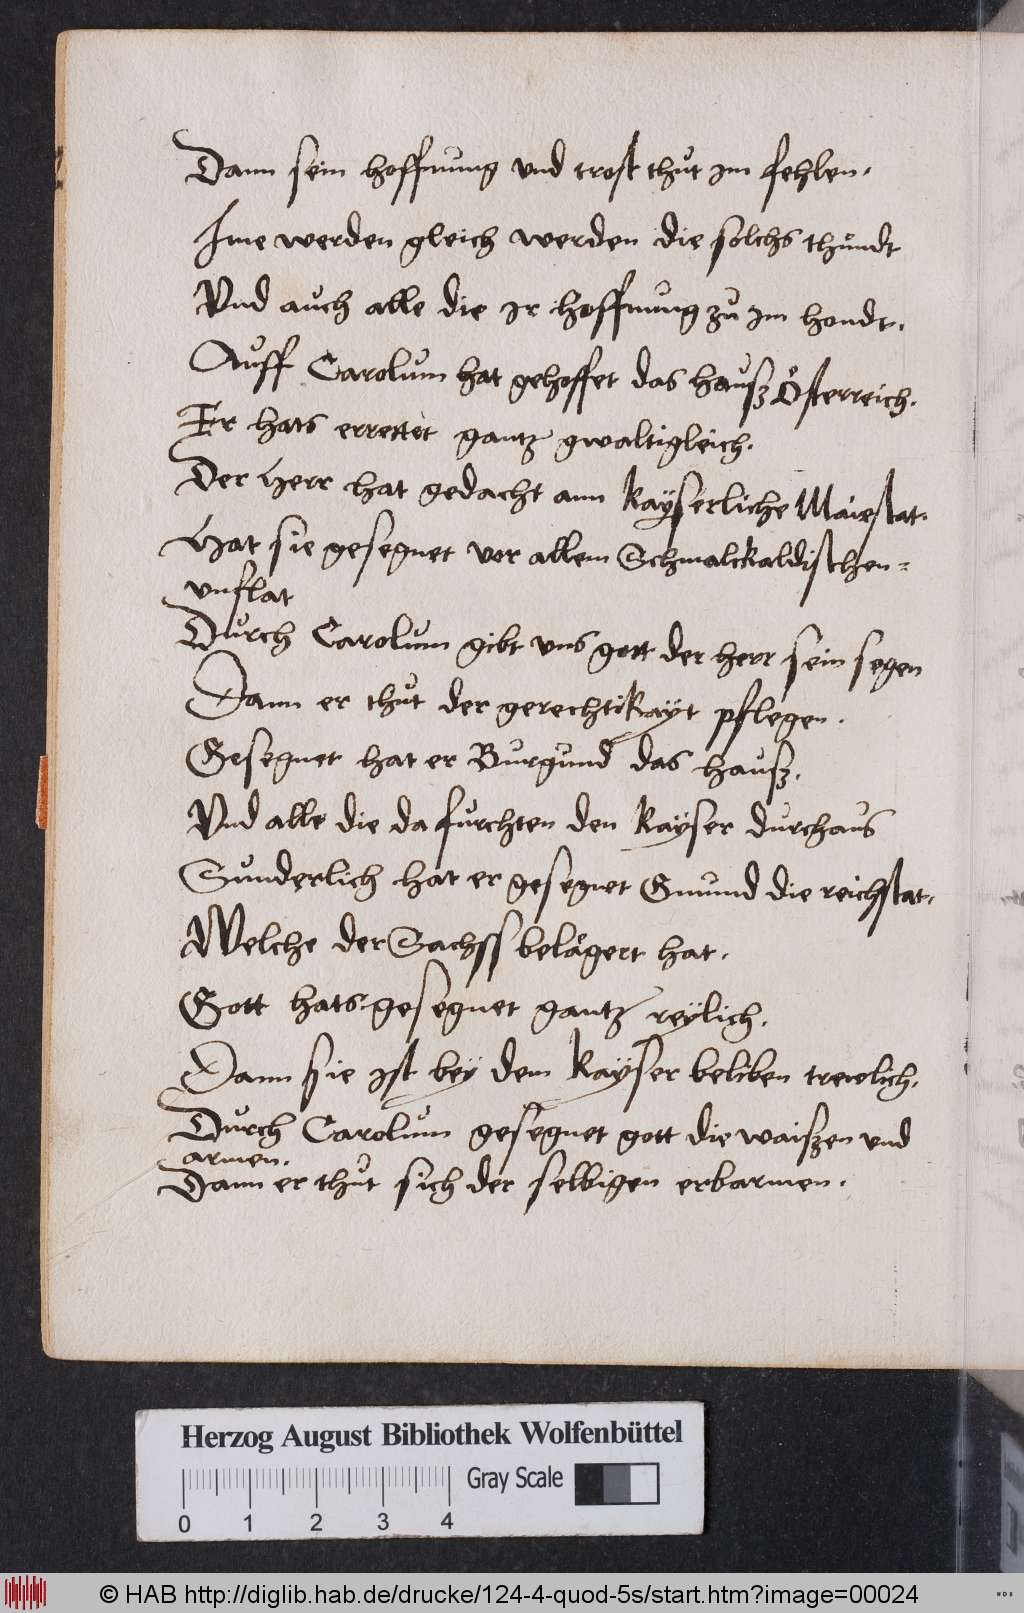 Dann sein hoffnung vnd trost thůt im fehlen.
Ime werden gleich werden die solchs thůndt
Vnd auch alle die ir hoffnung zů im hondt.
Auff Carolum hat gehoffet das hausz Österreich.
Er hats errettet gantz gwaltigleich.
Der Herr hat gedacht ann kaÿserliche Maiestat.
Hat sie gesegnet vor allem Schmalckaldischen=
vnflat
Durch Carolum gibt vns gott der herr sein segen
Dann er thůt der gerechtikaÿt pflegen.
Gesegnet hat er Burgund das hausz.
Vnd alle die da fůrchten den kaÿser durchaus
Sunderlich hat er gesegnet Gmund die reichstat.
Welche der Sachss belägert hat.
Gott hats gesegnet gantz reÿlich.
Dann sie ist beÿ dem kaÿser beliben trewlich.
Durch Carolum gesegnet gott die waiszen vnd
armen.
Dann er thůt sich der selbigen erbarmen.
Herzog August Bibliothek Wolfenbüttel
Gray Scale
0 1 2 3 4
© HAB http://diglib.hab.de/drucke/124-4-quod-5s/start.htm?image=00024